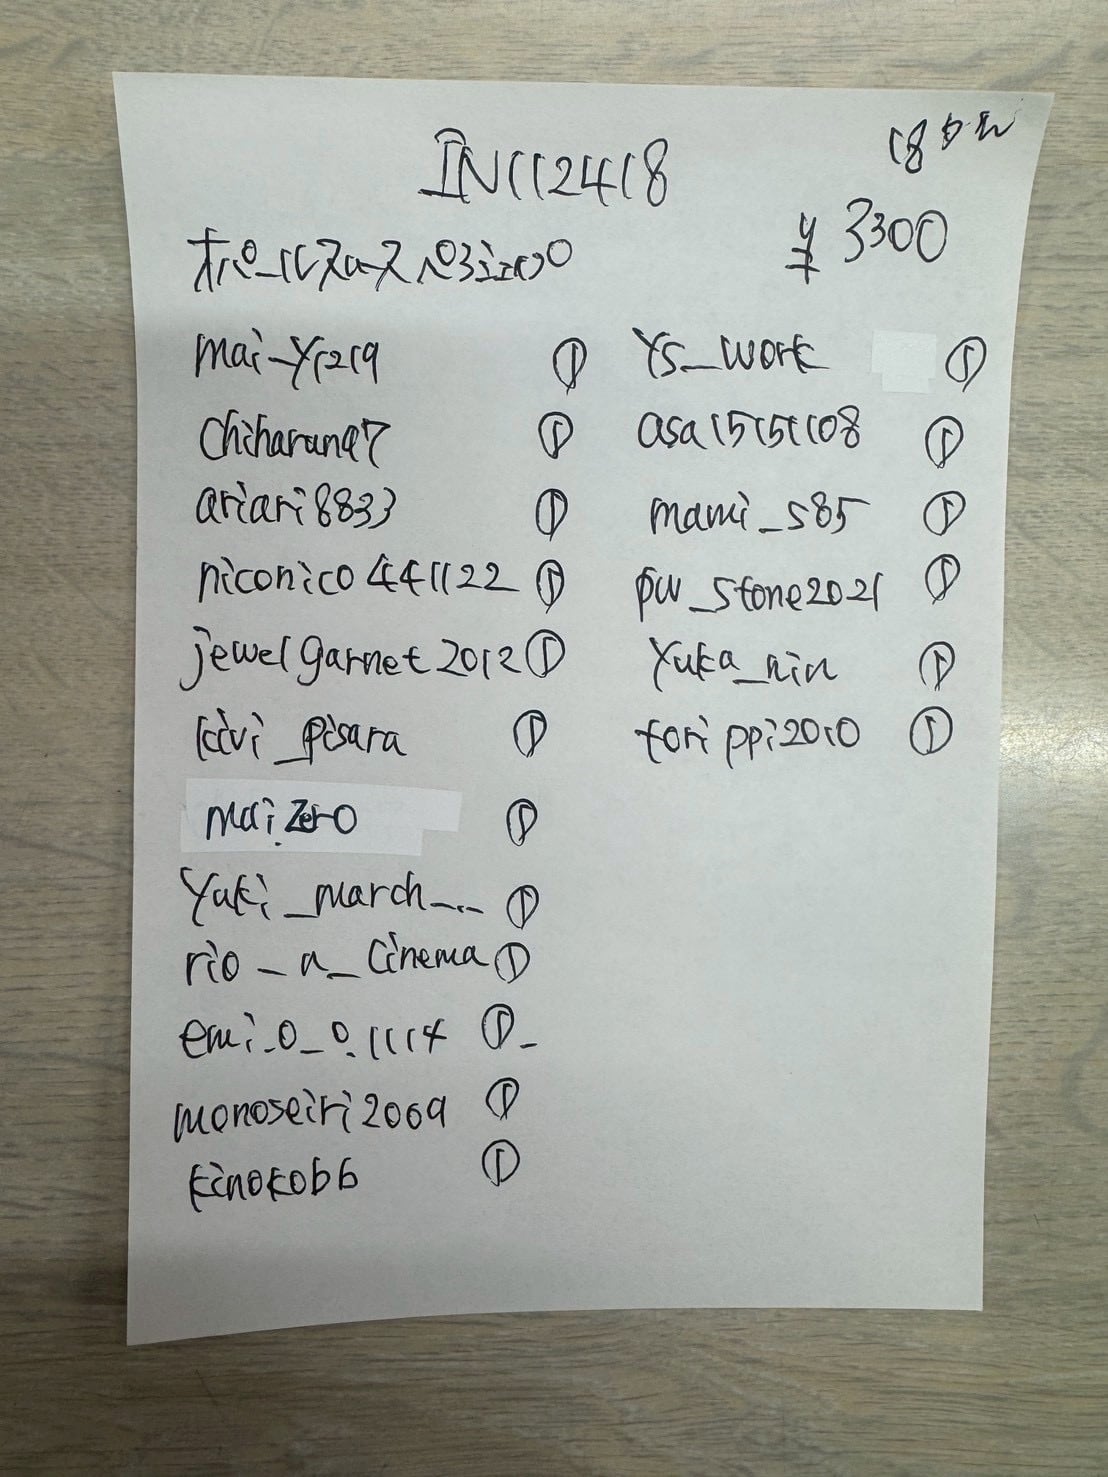 IN112418
18かん
¥3300
mai_y1219 ①
chiharun97 ①
ariari8833 ①
niconico441122 ①
jewelgarnet2012 ①
kivi_pisara ①
mai.zero ①
yuki_march_... ①
rio_a_cinema ①
emi.0_0.1114 ①
monoseiri2009 ①
kinoko66 ①
ys_work ①
asa15151108 ①
mami_s85 ①
pw_stone2021 ①
yuka_nin ①
torippi2010 ①